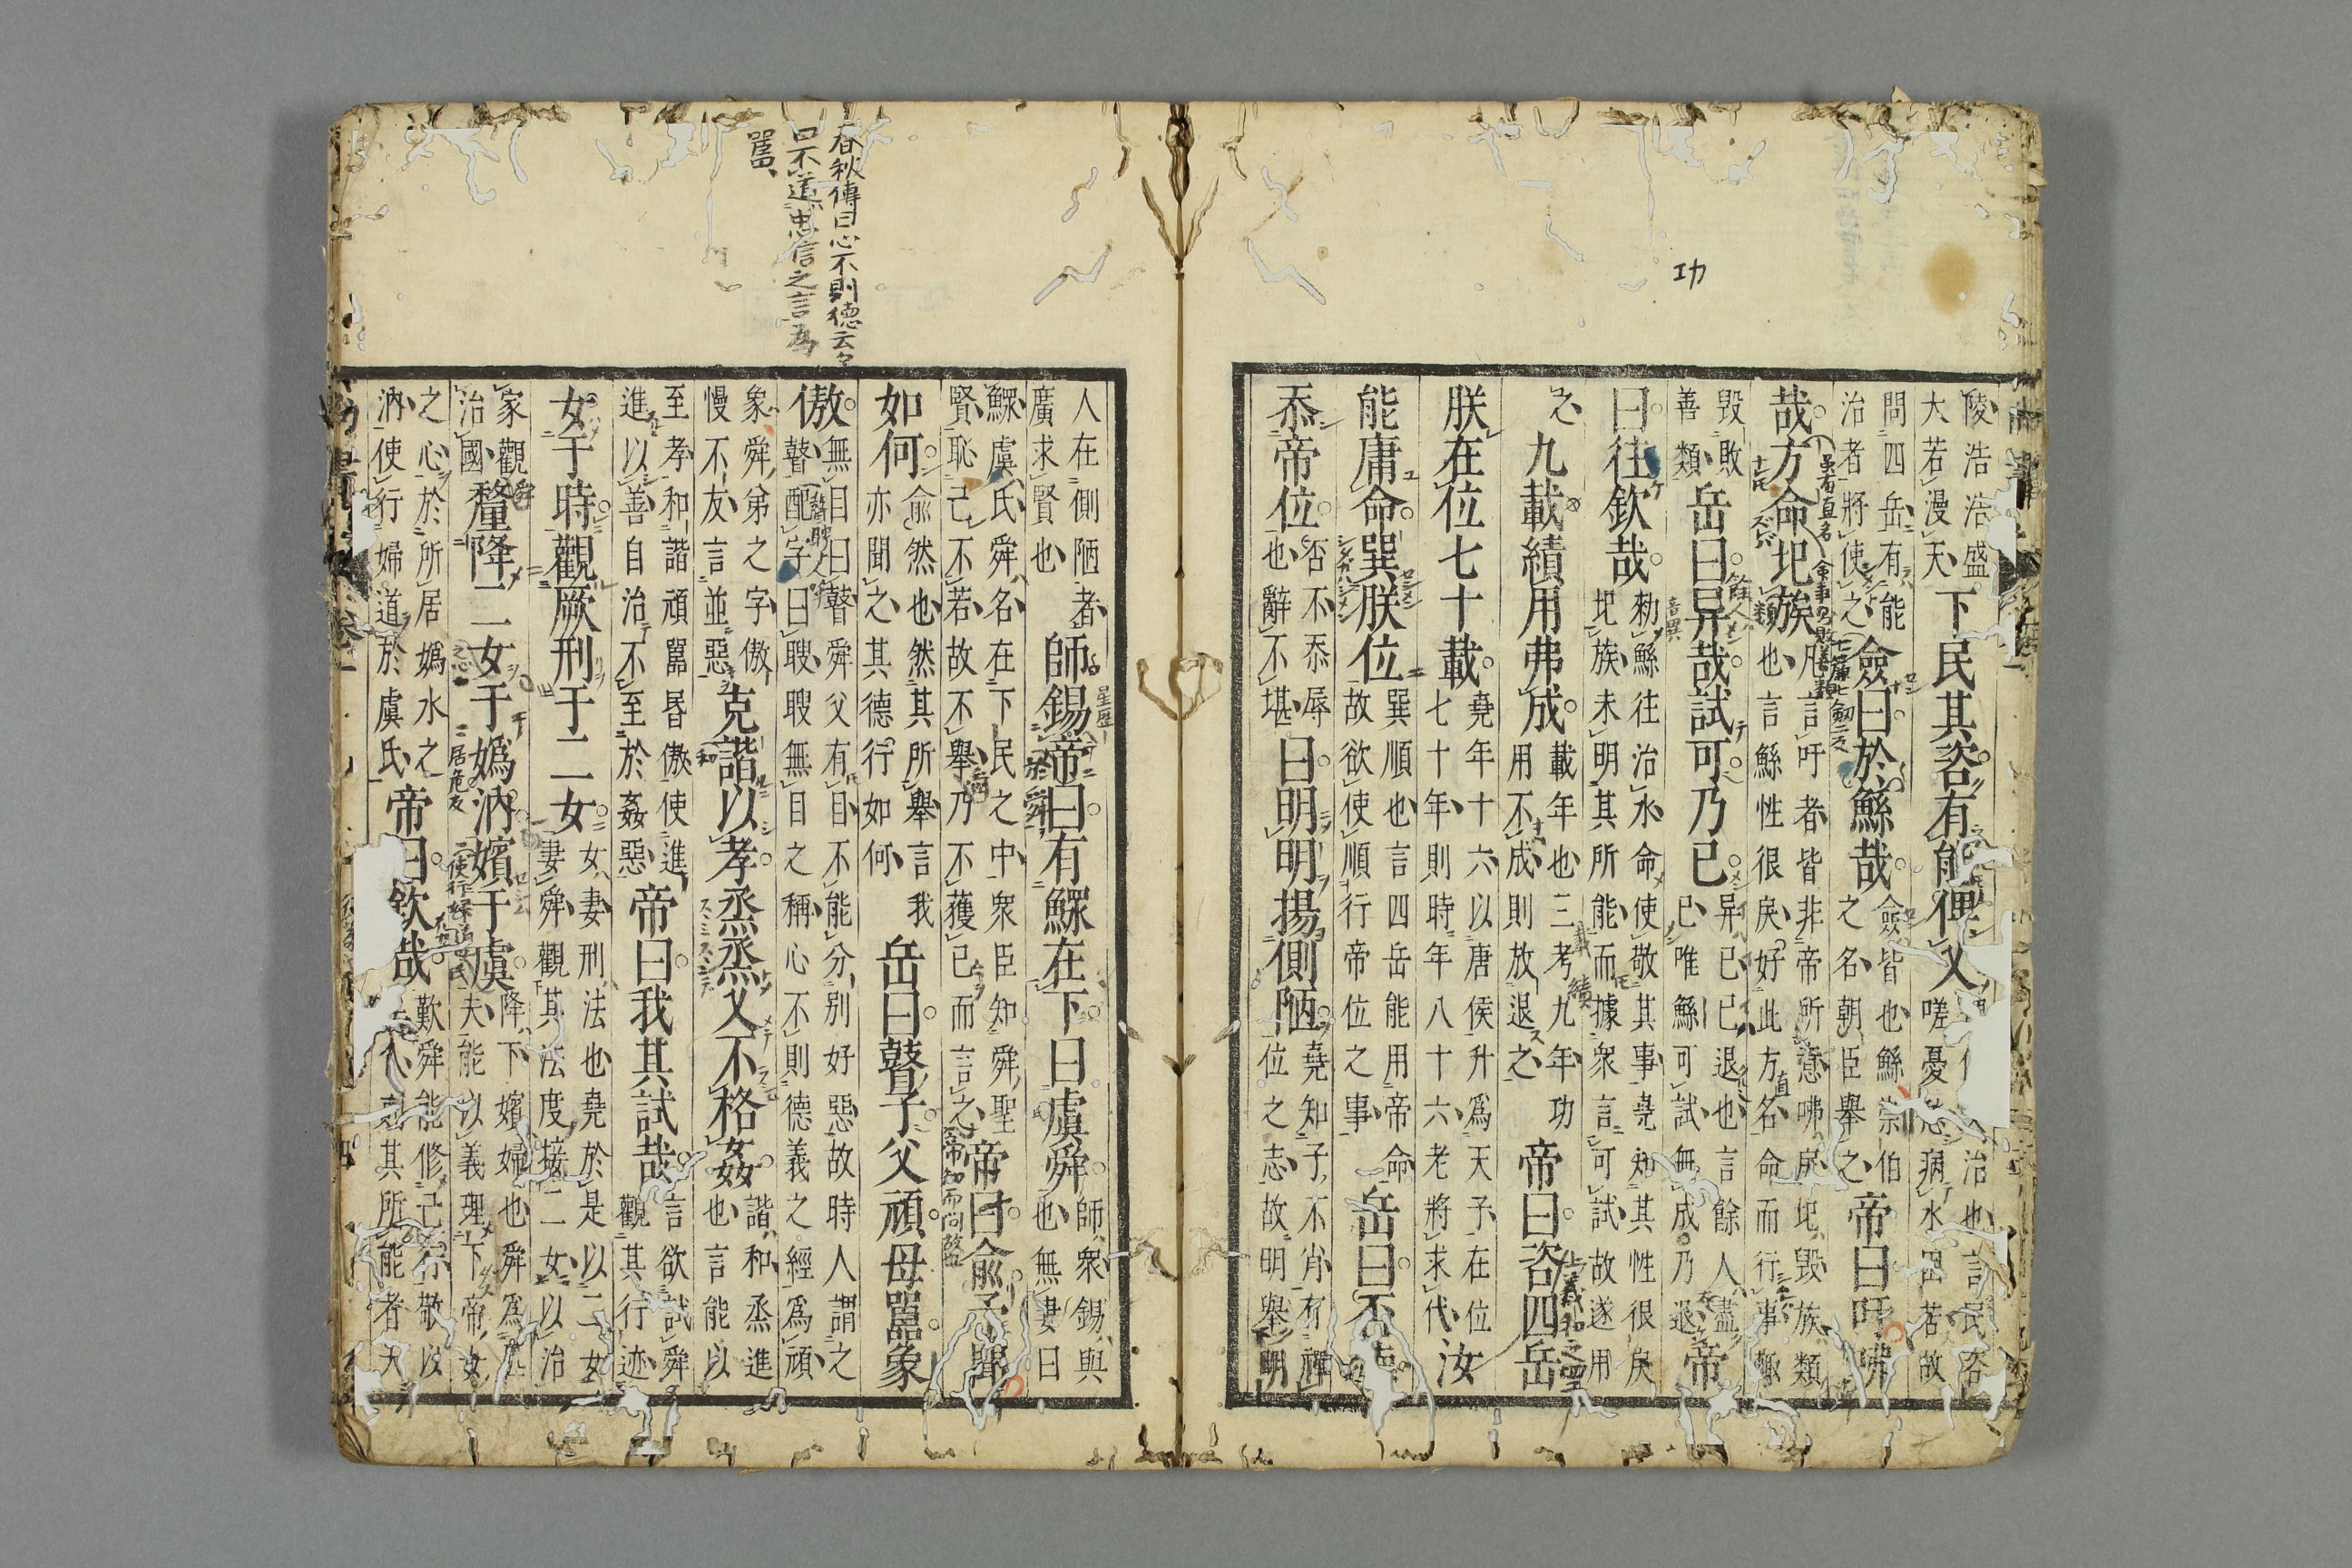 功
陵浩浩盛
大若漫天
下民其咨有能俾乂
治也言民咨
嗟憂愁病水困苦故
問四岳有能
治者將使之
僉曰於鯀哉
僉皆也鯀崇伯
之名朝臣舉之
帝曰吁咈
哉方命圮族
凡言吁者皆非帝所意咈戾圮毀族類
也言鯀性很戾好此方名命而行事輒
毀敗
善類
岳曰异哉試可乃已
异已已退也言餘人盡
已唯鯀可試無成乃退
帝
曰往欽哉
勑鯀往治水命使敬其事堯知其性很戾
圮族未明其所能而據衆言可試故遂用
之
九載績用弗成
載年也三考九年功
用不成則放退之
帝曰咨四岳
朕在位七十載
堯年十六以唐侯升爲天子在位
七十年則時年八十六老將求代
汝
能庸命巽朕位
巽順也言四岳能用帝命
故欲使順行帝位之事
岳曰否
忝帝位
否不忝辱
也辭不堪
曰明明揚側陋
堯知子不肖有禪
位之志故明舉明
春秋傳曰心不則德云々
口不道忠信之言爲
嚚
人在側陋者
廣求賢也
師錫帝曰有鰥在下曰虞舜
師衆錫與
也無妻曰
鰥虞氏舜名在下民之中衆臣知舜聖
賢恥己不若故不舉乃不獲已而言之
帝曰俞予聞
如何
俞然也然其所舉言我
亦聞之其德行如何
岳曰瞽子父頑母嚚象
傲
無目曰瞽舜父有目不能分別好惡故時人謂之
瞽配字曰瞍瞍無目之稱心不則德義之經爲頑
象舜弟之字傲
慢不友言並惡
克諧以孝烝烝乂不格姦
諧和烝進
也言能以
至孝和諧頑嚚昏傲使進
進以善自治不至於姦惡
帝曰我其試哉
言欲試舜
觀其行迹
女于時觀厥刑于二女
女妻刑法也堯於是以二女
妻舜觀其法度接二女以治
家觀
治國
釐降二女于嬀汭嬪于虞
降下嬪婦也舜爲匹
夫能以義理下帝女
之心於所居嬀水之
汭使行婦道於虞氏
帝曰欽哉
歎舜能修己行敬以
其所能者大